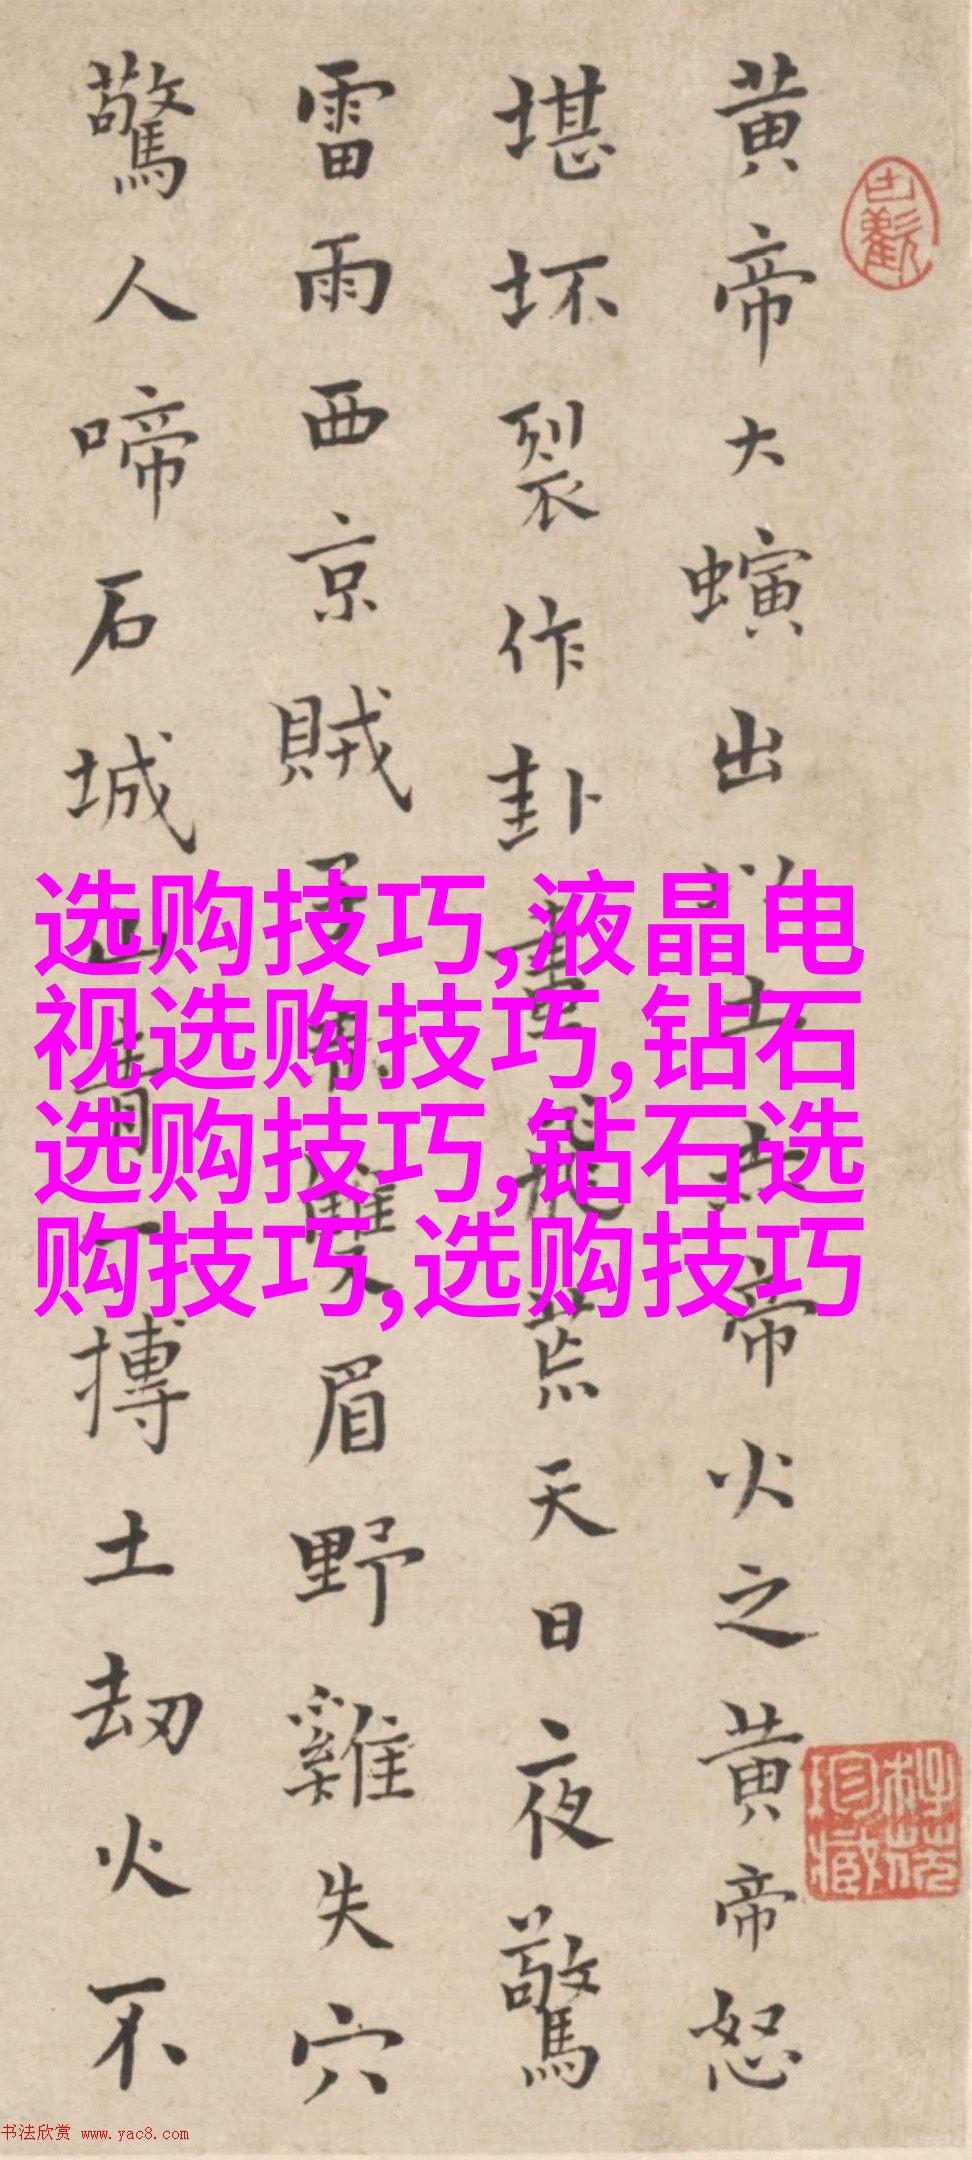 黄帝大螾出以土赤帝火之黄帝怒
堪坏裂作卦畫飛荒天日夜驚
雷雨西京賊子雙眉野雞失穴
驚人啼石城山青一摶土劫火不
选购技巧,液晶电
视选购技巧,钻石
选购技巧,钻石选
购技巧,选购技巧
书法欣赏 www.yac8.com